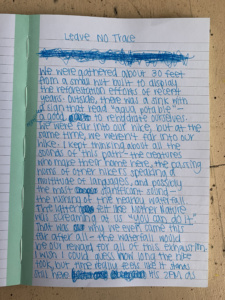 Leave No Trace
We were gathered about 30 feet
from a small hut built to display
the reforestation efforts of recent
years. Outside, there was a sink with
a sign that read "agua potable" –
a good to rehydrate ourselves.
We were far into our hike, but at the
same time, we weren't far into our
hike. I kept thinking about all the
sounds of this path: the creatures
who make their home here, the passing
hums of other hikers speaking a
multitude of languages, and possibly
the most sound –
the rushing of the nearby waterfall.
felt like Mother Nature
was screaming at us "you can do it"
That was why we even came this
far after all – the waterfall would
be our reward for all of this exhaustion.
I wish I could guess how long the hike
took, but time really feels like it stands
still here